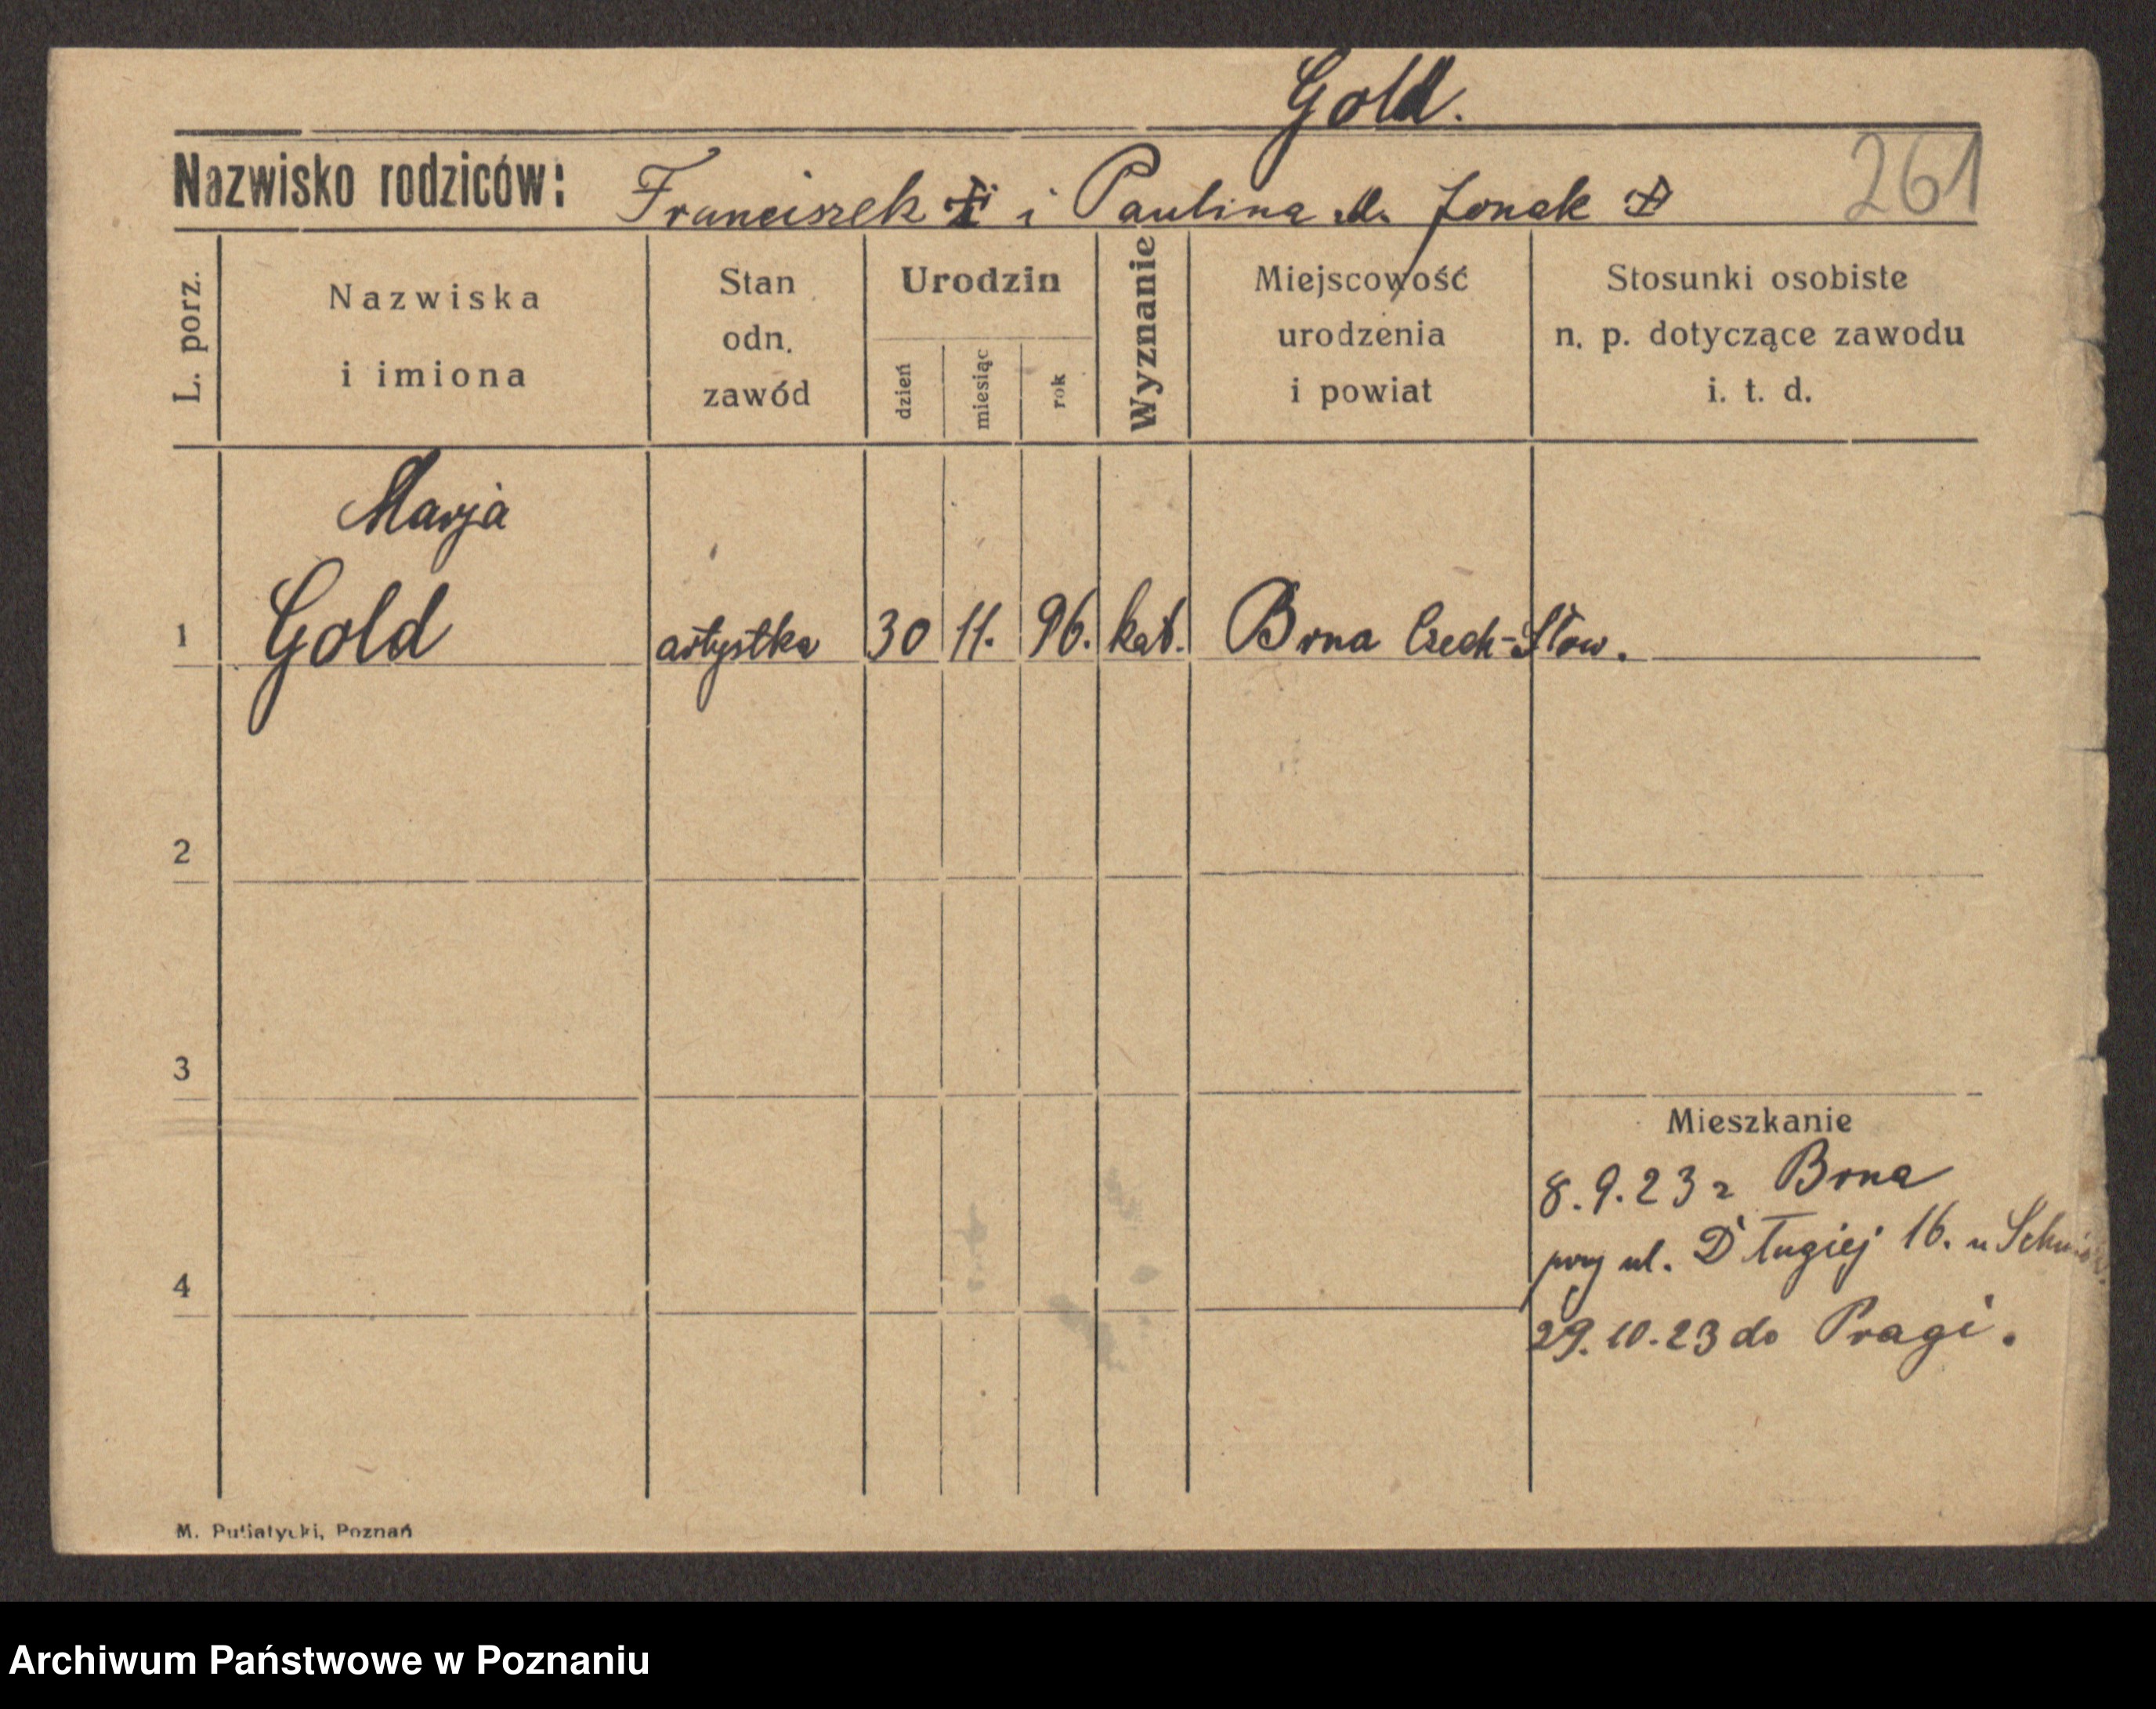 Gold.
Nazwisko rodziców: Franciszek i Paulina Jonak
261
L. porz.
Nazwiska
i imiona
Stan
odn.
zawód
Urodzin
dzień
miesiąc
rok
Wyznanie
Miejscowość
urodzenia
i powiat
Stosunki osobiste
n. p. dotyczące zawodu
i. t. d.
Marja
1 Gold artystka 30 11. 96. kat. Brna Czech-Słow.
2
3
Mieszkanie
8.9.23 z Brna
przy ul. Długiej 16. u
4
29.10.23 do Pragi.
M. Putiatycki, Poznań
Archiwum Państwowe w Poznaniu